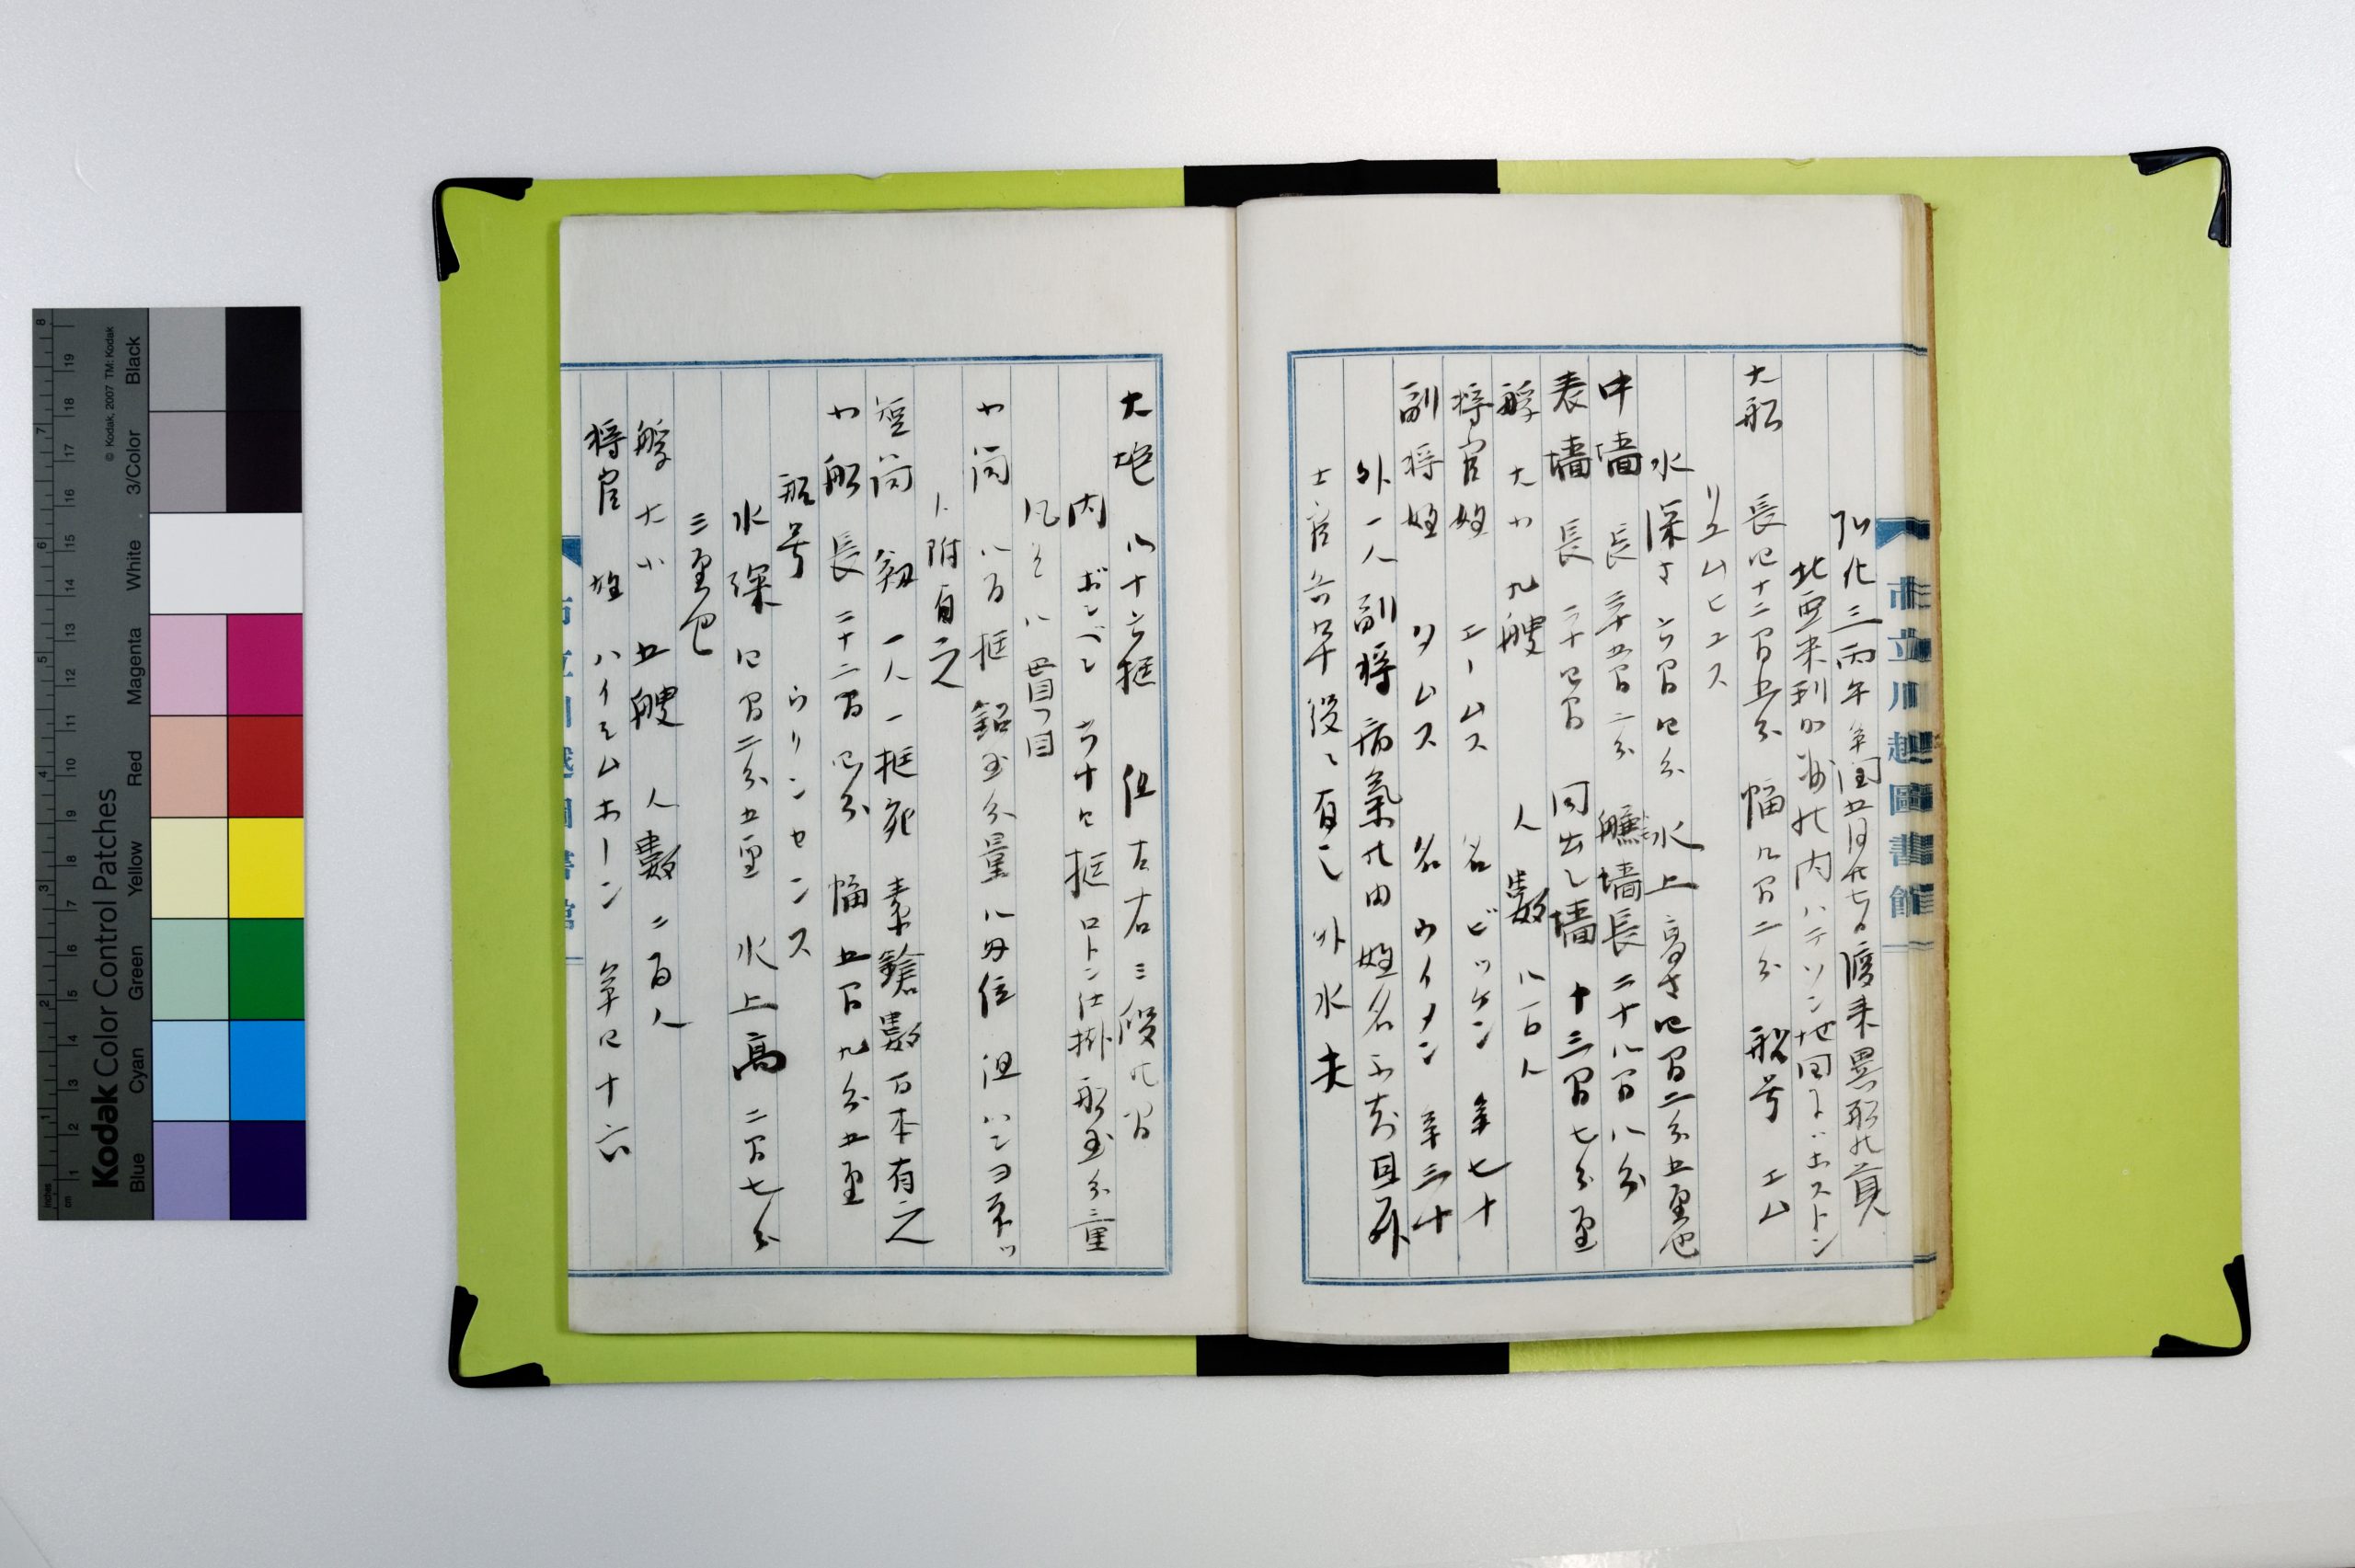 弘化三丙午年閏五月廿七日渡来異船之員
北亜米利加州之内ハテソン地同ト ボストン
大船 長四十二間五分 幅八間二分 船号 エム
リエムヒユス
水深サ六間四分 水上高サ四間二分五厘也
中墻 長三十五間二分 艫墻長二十八間八分
表墻 長三十四間 同出し墻 十三間七分厘
艀大小九艘 人數八百人
将官姓 エームス 名 ビッケン 年七十
副将姓 タムス 名 ウイメン 年三十
外一人副将病氣之由姓名
士官 役々有之 外水夫
大炮 八十六挺 但左右三段之間
内 ボンベン 六十四挺 ロトン仕掛 船玉分量
凡そ八貫目
小筒 八百挺 鉛玉分量八匁位 但ハヨネッ
ト附有之
短筒 剱 一人一挺宛 素鎗數百本有之
小船 長二十二間四分 幅五間九分五厘
船号 ウリンセンス
水深四間二分五厘 水上高二間七分
三厘也
艀大小五艘 人數二百人
将官 姓 ハイミムホーン 年四十六
市立川越圖書館
Kodak Color Control Patches
© Kodak, 2007 TM: Kodak
Blue Cyan Green Yellow Red Magenta White 3/Color Black